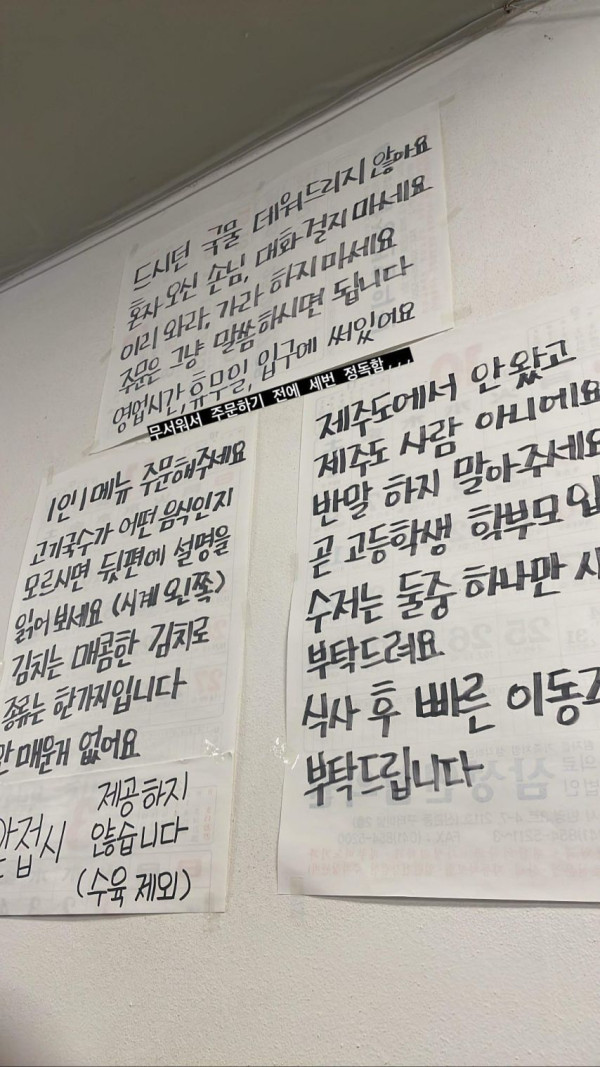 드시던 국물 데워드리지 않아요
혼자 오신 손님, 대화 걸지 마세요
이리 와라, 가라 하지 마세요
주문은 그냥 말씀하시면 됩니다
영업시간, 휴무일, 입구에 써있어요
무서워서 주문하기 전에 세번 정독함...
1인 1메뉴 주문해주세요
고기국수가 어떤 음식인지
모르시면 뒷편에 설명을
읽어 보세요 (시계 왼쪽)
김치는 매콤한 김치로
종류는 한가지입니다
안 매운거 없어요
접시 제공하지
않습니다
(수육 제외)
제주도에서 안 왔고
제주도 사람 아니에요
반말 하지 말아주세요
곧 고등학생 학부모입
수저는 둘중 하나만 사
부탁드려요
식사 후 빠른 이동
부탁드립니다